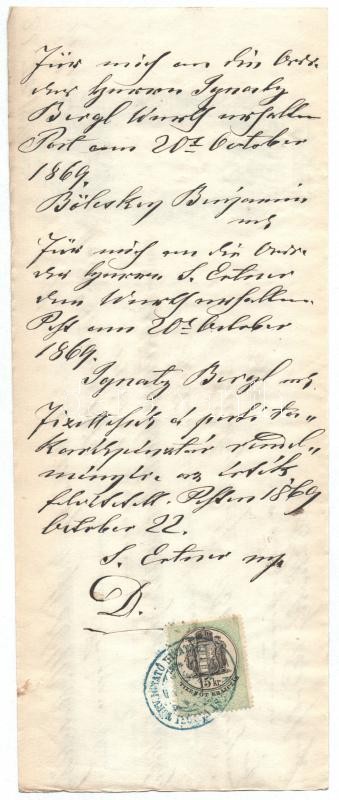 Für mich an die Ordre
des Herrn Ignatz
Bergl Werth erhalten
Pest am 20t October
1869
Bölcskey Benjamin
mp
Für mich an die Ordre
des Herrn S. Ertner
den Werth erhalten
Pest am 20t October
1869.
Ignatz Bergl mp
Fizettessék a pesti ta-
karékpénztár rendel-
ményire az érték
felvétetett. Pesten 1869
October 22.
S. Ertner mp
D.
5 kr.